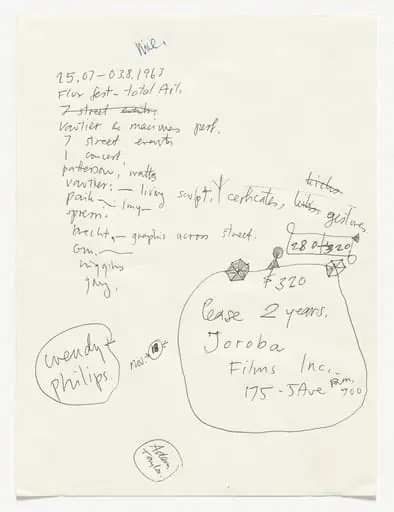 Nice.
25.07–03.8.1963
Flux fest - total Art.
7 street events
Vautier & maciunas perf.
7 street events
1 concert.
patterson, watts
vautier: — living sculpt, certificates, kicks, gestures
paik —
spoerri
brecht, — graphic across street.
higgins
280 + 320
F 320
lease 2 years.
Joroba
Films Inc.
175 - 5 Ave
700
wendy +
philips
nov.
18
Adam